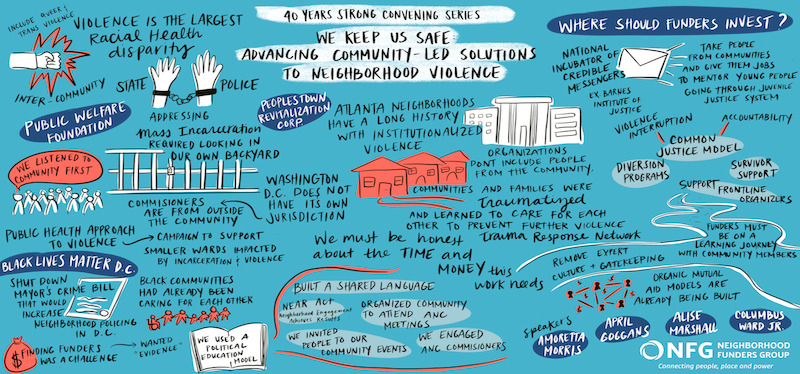 40 YEARS STRONG CONVENING SERIES
WE KEEP US SAFE
ADVANCING COMMUNITY-LED SOLUTIONS
TO NEIGHBORHOOD VIOLENCE
INCLUDE QUEER &
TRANS VIOLENCE
INTER-COMMUNITY
VIOLENCE IS THE LARGEST
Racial Health
disparity
STATE
POLICE
PUBLIC WELFARE
FOUNDATION
ADDRESSING
Mass Incarceration
REQUIRED LOOKING IN
OUR OWN BACKYARD
WE LISTENED TO
COMMUNITY FIRST
COMMISIONERS
ARE FROM OUTSIDE
THE COMMUNITY
WASHINGTON
D.C. DOES NOT
HAVE ITS OWN
JURISDICTION
PUBLIC HEALTH APPROACH
TO VIOLENCE
CAMPAIGN TO SUPPORT
SMALLER WARDS IMPACTED
BY INCARCERATION & VIOLENCE
BLACK LIVES MATTER D.C.
SHUT DOWN
MAYOR'S CRIME BILL
THAT WOULD
INCREASE
NEIGHBORHOOD POLICING
IN D.C.
BLACK COMMUNITIES
HAD ALREADY BEEN
CARING FOR EACH OTHER
$
FINDING FUNDERS
WAS A CHALLENGE
WANTED
"EVIDENCE"
WE USED A
POLITICAL
EDUCATION
MODEL
PEOPLESTOWN
REVITALIZATION
CORP.
ATLANTA NEIGHBORHOODS
HAVE A LONG HISTORY
WITH INSTITUTIONALIZED
VIOLENCE
ORGANIZATIONS
DONT INCLUDE PEOPLE
FROM THE COMMUNITY.
COMMUNITIES AND FAMILIES WERE
Traumatized
AND LEARNED TO CARE FOR EACH
OTHER TO PREVENT FURTHER VIOLENCE
Trauma Response Network
We must be honest
about the TIME and
MONEY this
work needs
BUILT A SHARED LANGUAGE
NEAR Act
Neighborhood Engagement
Achieves Results
ORGANIZED COMMUNITY
TO ATTEND ANC
MEETINGS
WE INVITED
PEOPLE TO OUR
COMMUNITY EVENTS
WE ENGAGED
ANC COMMISIONERS
WHERE SHOULD FUNDERS INVEST?
NATIONAL
INCUBATOR OF
CREDIBLE
MESSENGERS
EX. BARNES
INSTITUTE OF
JUSTICE
TAKE PEOPLE
FROM COMMUNITIES
AND GIVE THEM JOBS
TO MENTOR YOUNG PEOPLE
GOING THROUGH JUVENILE
JUSTICE SYSTEM
VIOLENCE
INTERRUPTION
ACCOUNTABILITY
COMMON
JUSTICE MODEL
DIVERSION
PROGRAMS
SURVIVOR
SUPPORT
SUPPORT FRONTLINE
ORGANIZERS
FUNDERS MUST
BE ON A
LEARNING JOURNEY
WITH COMMUNITY MEMBERS
REMOVE EXPERT
CULTURE + GATEKEEPING
ORGANIC MUTUAL
AID MODELS ARE
ALREADY BEING BUILT
speakers
AMORETTA
MORRIS
APRIL
GOGGANS
ALISE
MARSHALL
COLUMBUS
WARD JR.
NFG NEIGHBORHOOD
FUNDERS GROUP
Connecting people, place and power